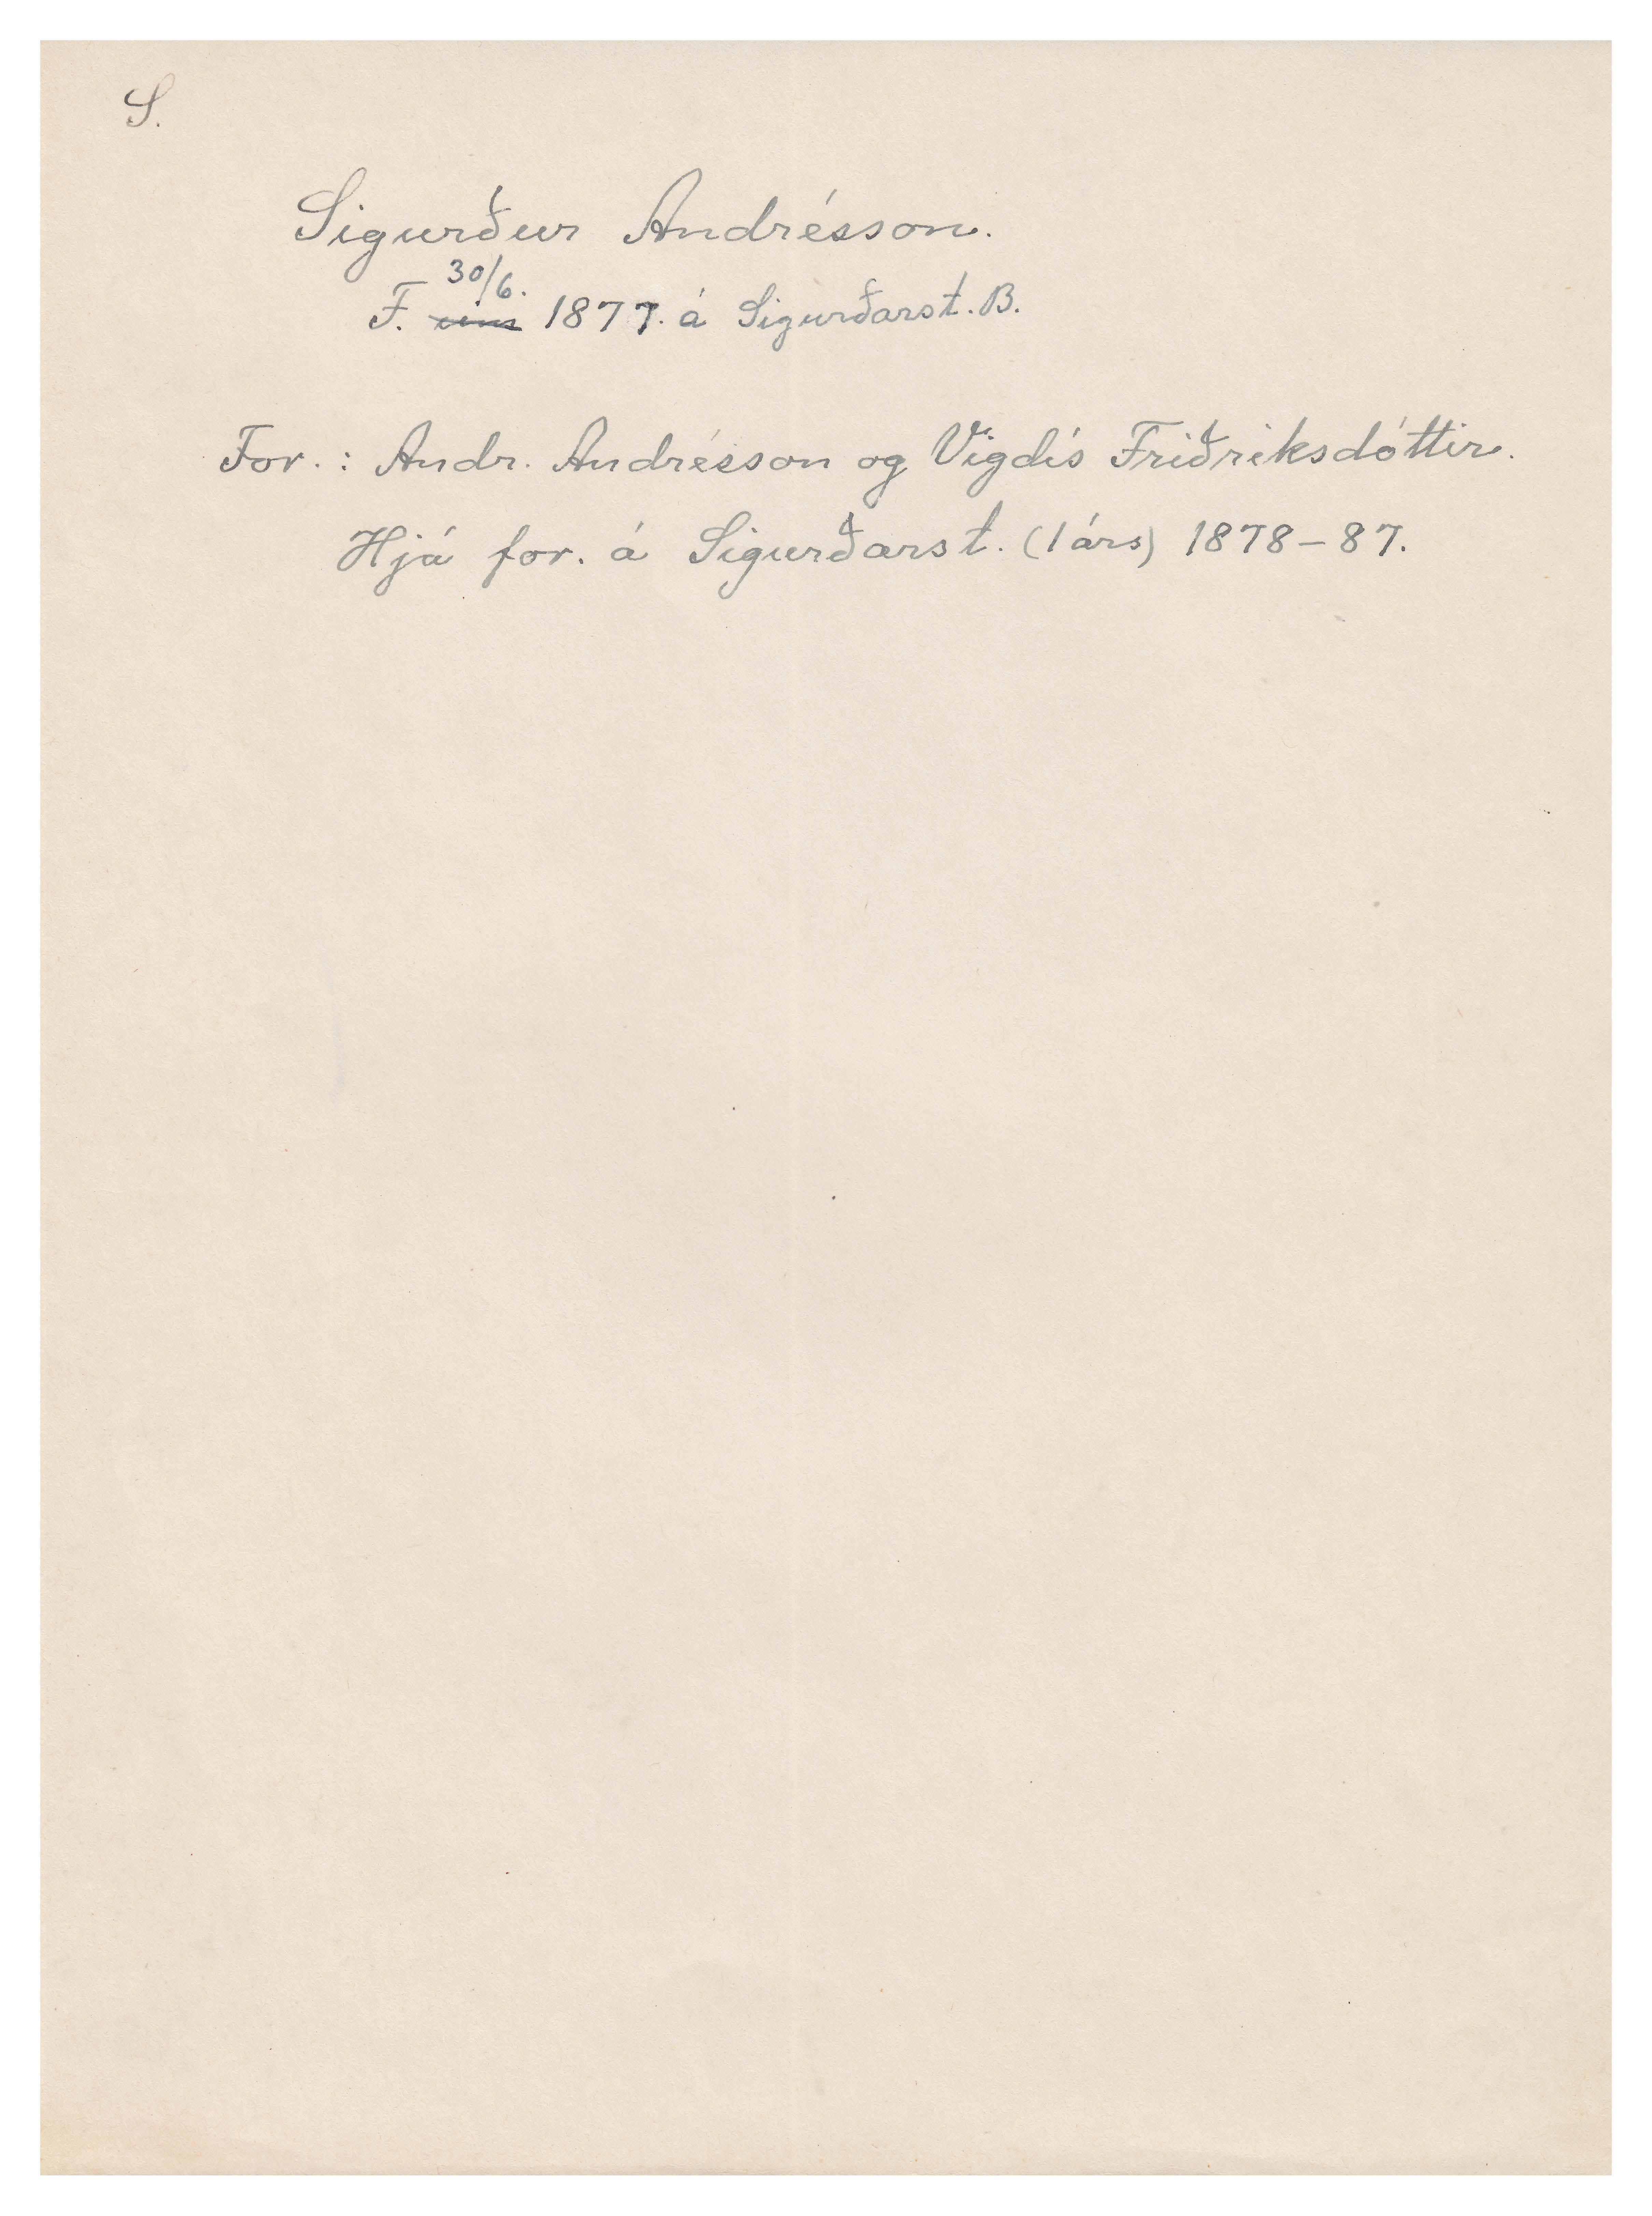 S.
Sigurður Andrésson.
30/6.
F. 1877. á Sigurðarst. B.
For.: Andr. Andrésson og Vigdís Friðriksdóttir.
Hjá for. á Sigurðarst. (1 árs) 1878-87.